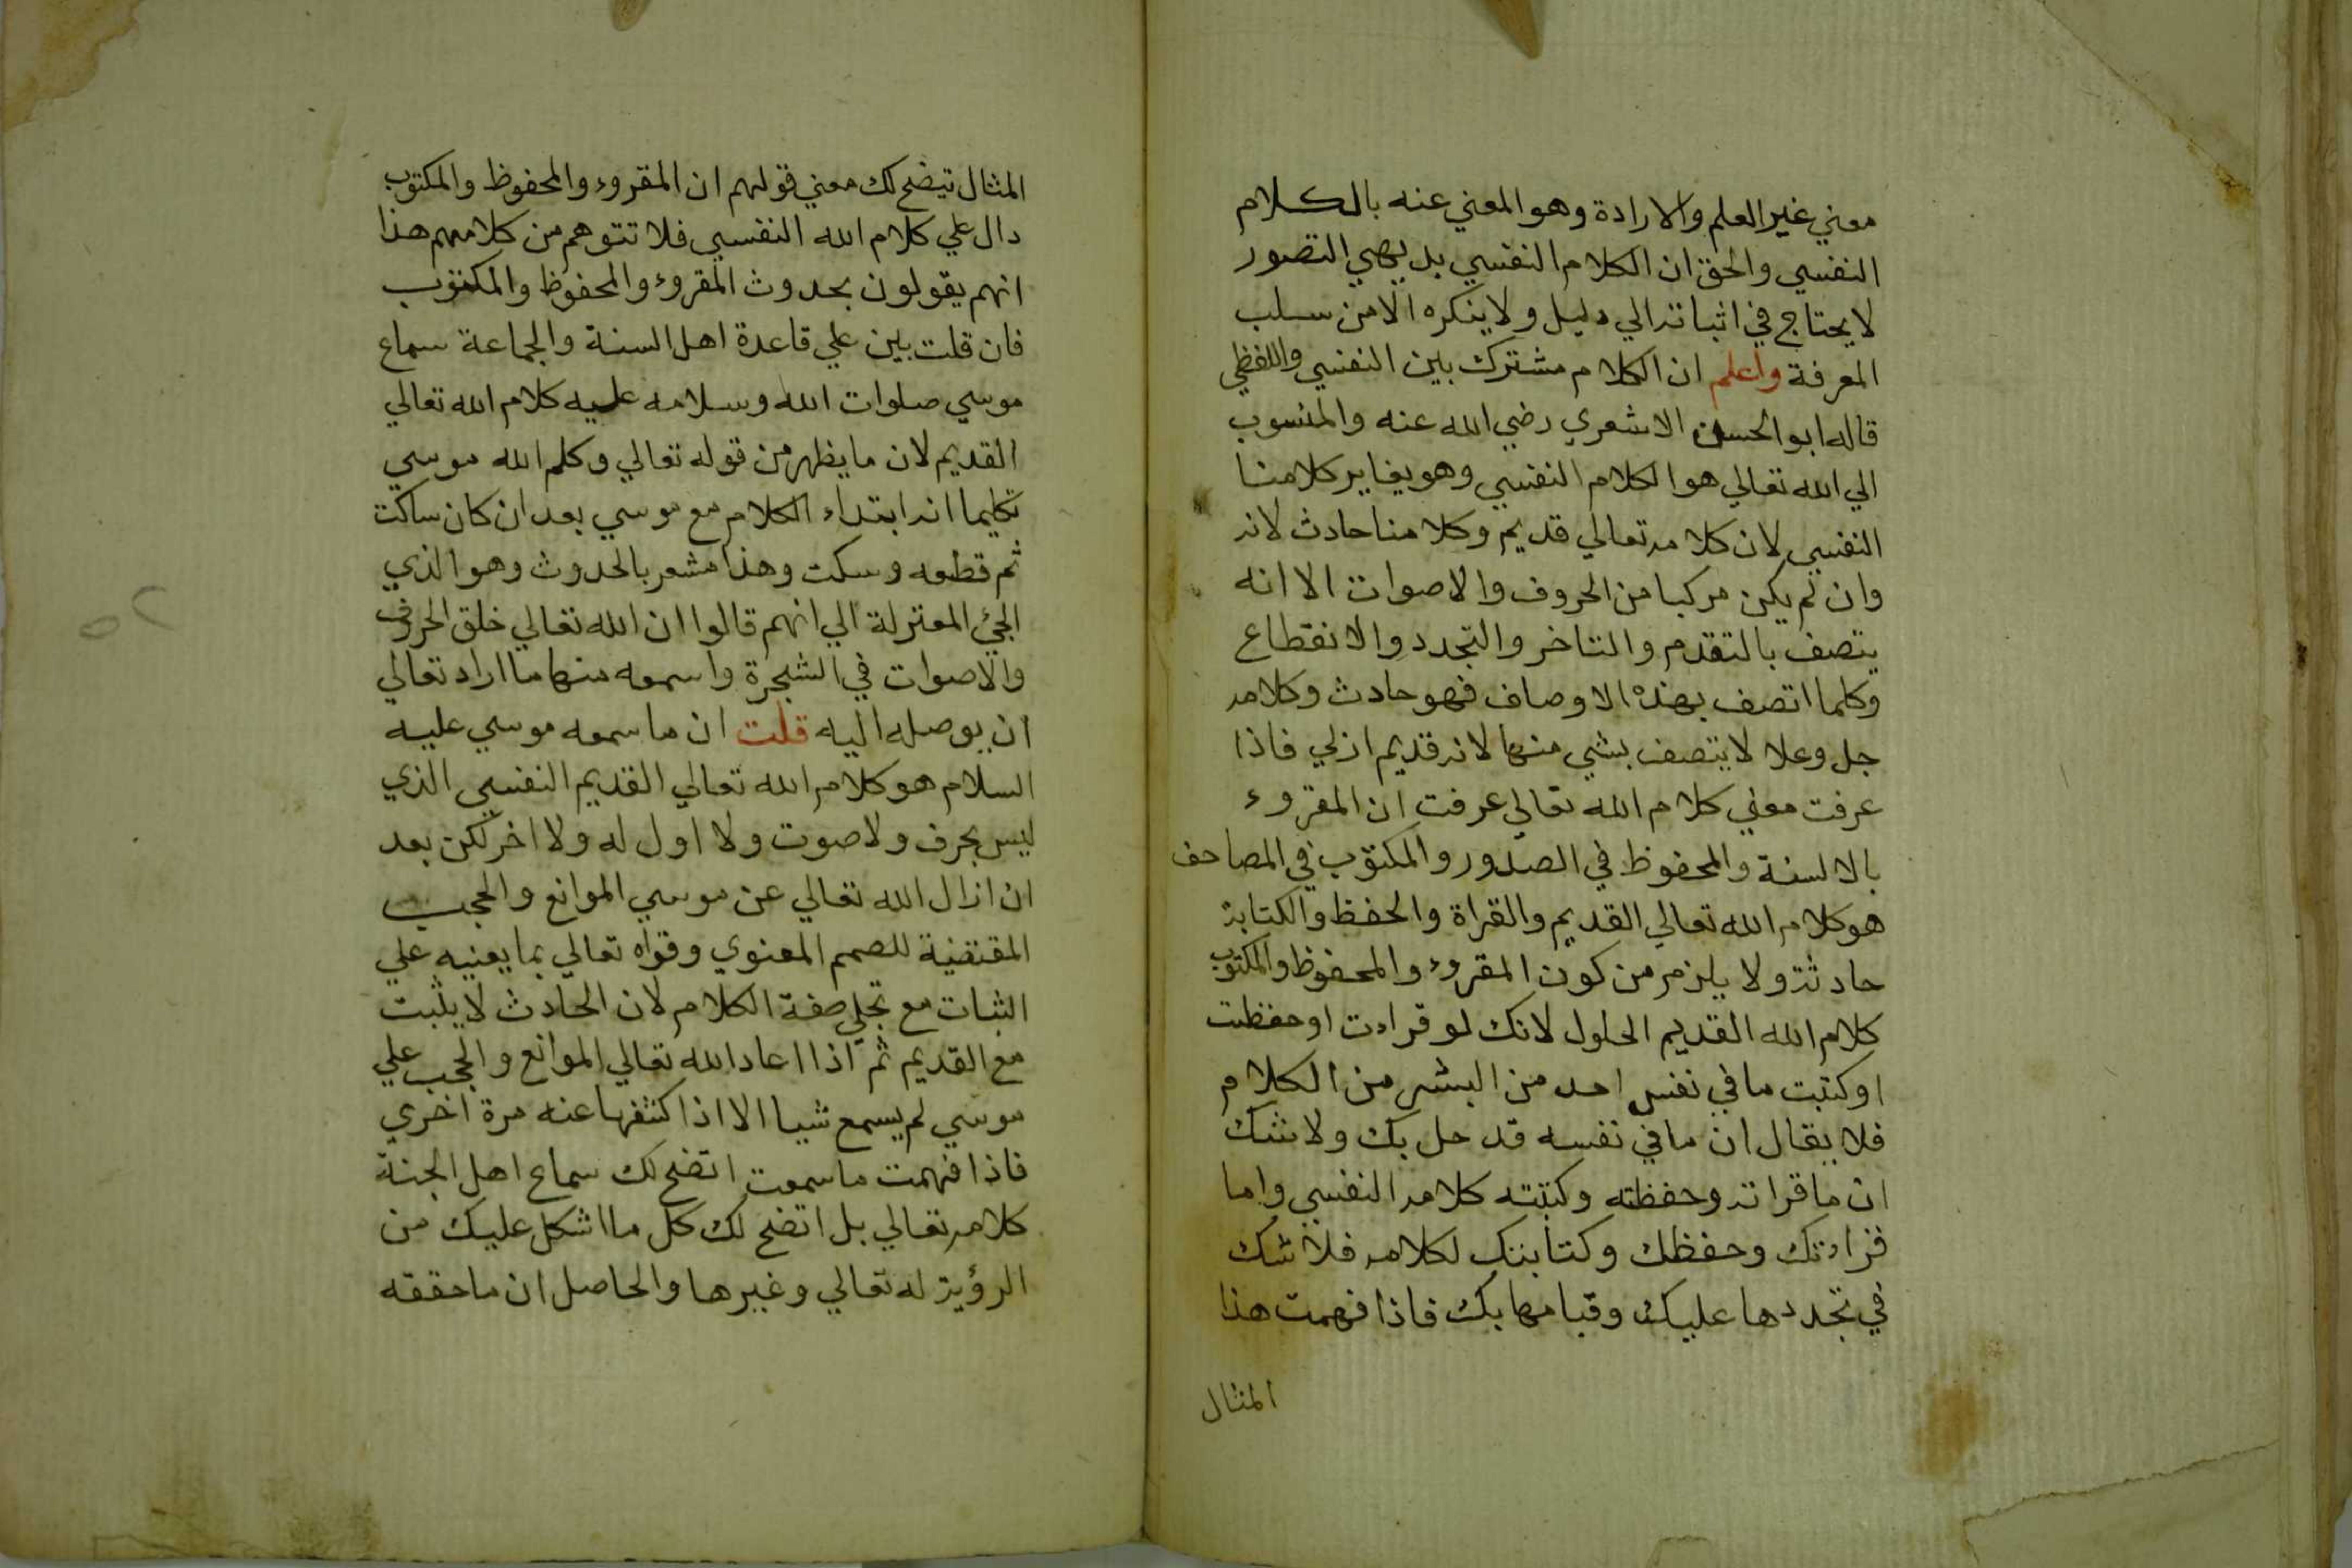 معني غير العلم والارادة وهو المعني عنه بالكلام
النفسي والحق ان الكلام النفسي بديهي التصور
لا يحتاج في اثباته الي دليل ولا ينكره الا من سلب
المعرفة واعلم ان الكلام مشترك بين النفسي واللفظي
قاله ابو الحسن الاشعري رضي الله عنه والمنسوب
الي الله تعالي هو الكلام النفسي وهو يغاير كلامنا
النفسي لان كلامه تعالي قديم وكلامنا حادث لانه
وان لم يكن مركبا من الحروف والاصوات الا انه
يتصف بالتقدم والتاخر والتجدد والانقطاع
وكلما اتصف بهذه الاوصاف فهو حادث وكلامه
جل وعلا لا يتصف بشي منها لانه قديم ازلي فاذا
عرفت معني كلام الله تعالي عرفت ان المقروء
بالالسنة والمحفوظ في الصدور والمكتوب في المصاحف
هو كلام الله تعالي القديم والقراة والحفظ والكتابة
حادثة ولا يلزم من كون المقروء والمحفوظ والمكتوب
كلام الله القديم الحلول لانك لو قراءت او حفظت
او كتبت ما في نفس احد من البشر من الكلام
فلا يقال ان ما في نفسه قد حل بك ولا شك
ان ما قراته وحفظته وكتبته كلامه النفسي واما
قراءتك وحفظك وكتابتك لكلامه فلا شك
في تجددها عليك وقيامها بك فاذا فهمت هذا
المثال
المثال تيضح لك معني قولهم ان المقروء والمحفوظ والمكتوب
دال علي كلام الله النفسي فلا تتوهم من كلامهم هذا
انهم يقولون بحدوث المقروء والمحفوظ والمكتوب
فان قلت بين علي قاعدة اهل السنة والجماعة سماع
موسي صلوات الله وسلامه عليه كلام الله تعالي
القديم لان ما يظهر من قوله تعالي وكلم الله موسي
تكليما انه ابتداء الكلام مع موسي بعد ان كان ساكت
ثم قطعه وسكت وهذا مشعر بالحدوث وهو الذي
الجئ المعتزلة الي انهم قالوا ان الله تعالي خلق الحروف
والاصوات في الشجرة واسمعه منها ما اراد تعالي
ان يوصله اليه قلت ان ما سمعه موسي عليه
السلام هو كلام الله تعالي القديم النفسي الذي
ليس بحرف ولا صوت ولا اول له ولا اخر لكن بعد
ان ازال الله تعالي عن موسي الموانع والحجب
المقتضية للصمم المعنوي وقواه تعالي بما يعينه علي
الثبات مع تجلي صفة الكلام لان الحادث لا يثبت
مع القديم ثم اذا اعاد الله تعالي الموانع والحجب علي
موسي لم يسمع شيا الا اذا كشفها عنه مرة اخري
فاذا فهمت ما سمعت اتضح لك سماع اهل الجنة
كلامه تعالي بل اتضح لك كل ما اشكل عليك من
الرؤية له تعالي وغيرها والحاصل ان ما حققه